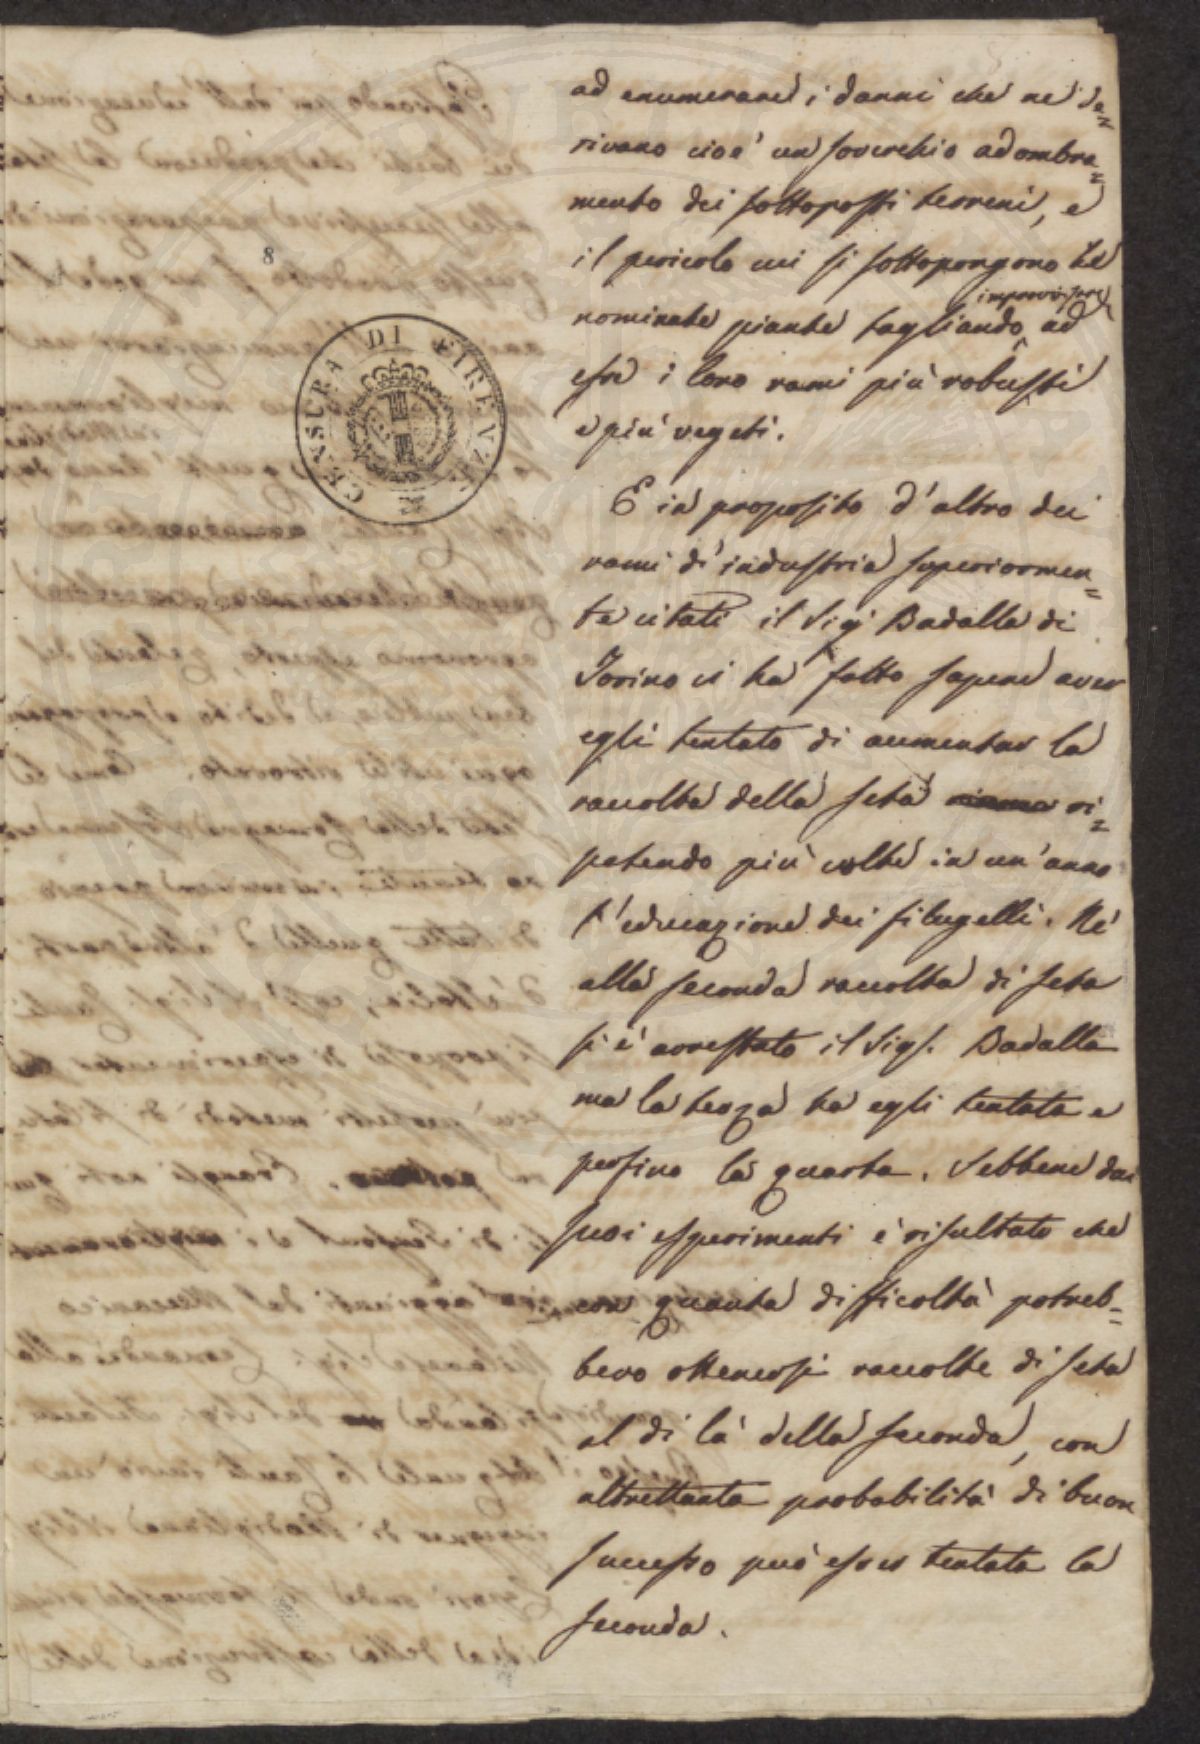 8
CENSURA DI FIRENZE
ad enumerare i danni che ne de=
rivano cioè un soverchio adombra=
mento dei sottoposti terreni, e
il pericolo cui si sottopongono le
improvvisare
nominate piante tagliando ad
esse i loro rami più robusti
e più vegeti.
E in proposito d'altro dei
rami d'industria superiormen=
te citati il Sigr Badalla di
Torino ci ha fatto sapere aver
egli tentato di aumentar la
raccolta della seta ri=
petendo più volte in un'anno
l'educazione dei filugelli. Nè
alla seconda raccolta di seta
si è arrestato il Sigr. Badalla
ma la terza ha egli tentata e
persino la quarta. Sebbene dai
suoi esperimenti è risultato che
con quanta difficoltà potreb=
bero ottenersi raccolte di seta
al di là della seconda, con
altrettanta probabilità di buon
successo può esser tentata la
seconda.